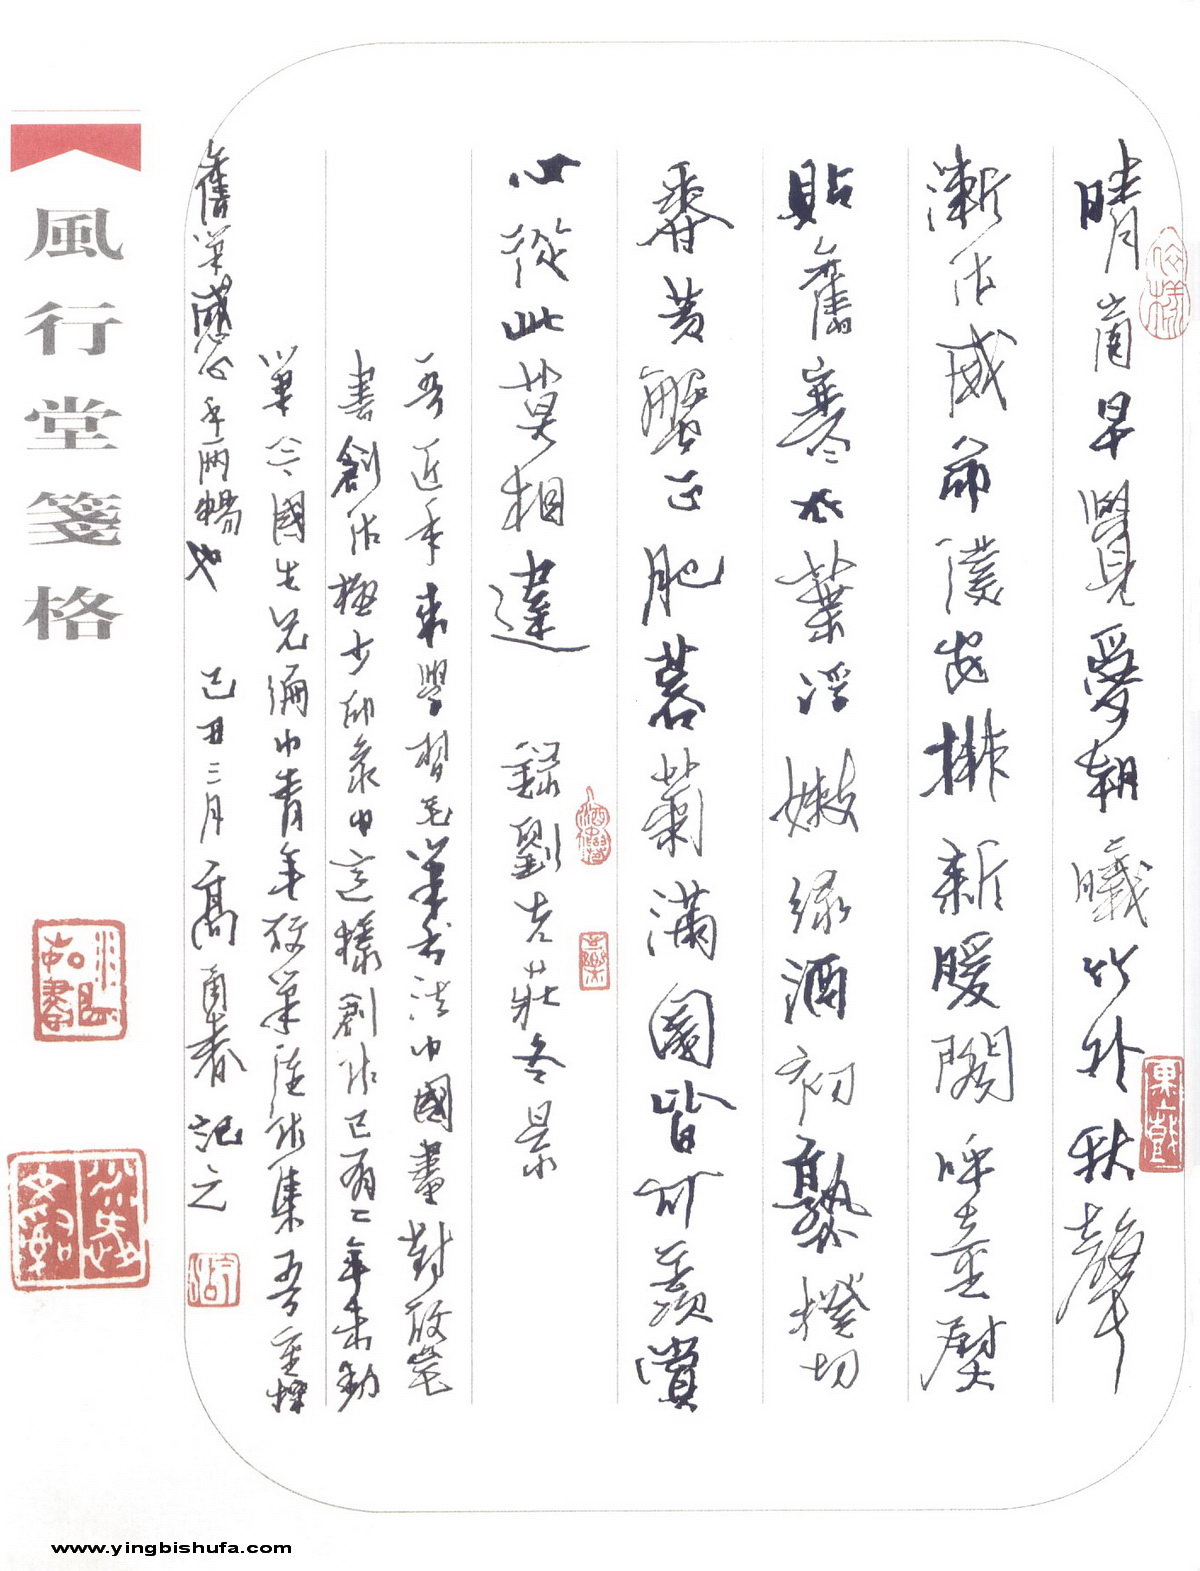 晴窗早覺愛朝曦竹外秋聲
漸作威命僕安排新暖閣呼童熨
貼舊寒衣葉浮嫩綠酒初熟橙切
香黃蟹正肥蓉菊滿園皆可羨賞
心從此莫相違 錄劉克莊冬景
吾近年來學習毛筆書法中國畫對硬筆
書創作極少印象中這樣創作已有二年未動
筆今國生兄編中青年硬筆作集吾重操
舊筆感心手兩暢也 己丑三月高春記之
風行堂箋格
www.yingbishufa.com